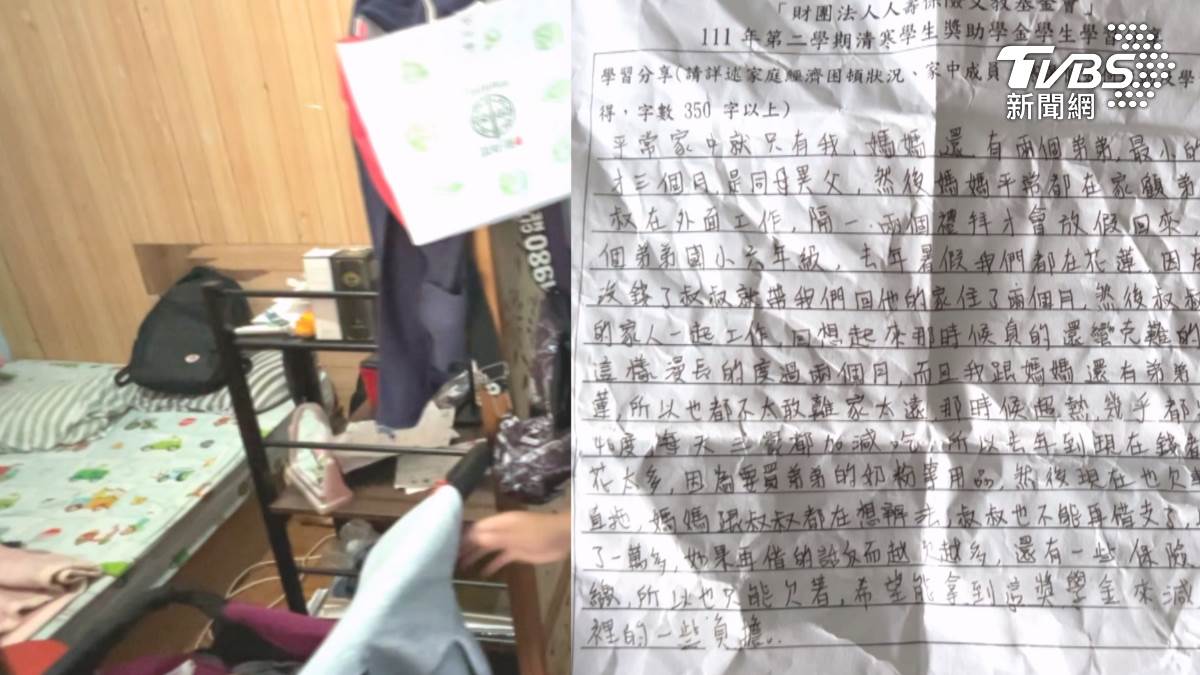 0980
「財團法人人壽保險文教基金會」
111 年第二學期清寒學生獎助學金學生學習
TVBS
新聞網
學習分享(請詳述家庭經濟困頓狀況、家中成員
得,字數 350 字以上)
平常家中就只有我,媽媽還有兩個弟弟,最小的
才三個月,是同母異父,然後媽媽平常都在家顧弟
叔在外面工作,隔一兩個禮拜才會放假回來
個弟弟國小六年級,去年暑假我們都在花蓮,因為
沒錢了叔叔就帶我們回他的家住了兩個月,然後叔叔
的家人一起工作,回想起來那時候真的還蠻克難的
這樣漫長的度過兩個月,而且我跟媽媽還有弟弟
蓮,所以也都不太敢離家太遠,那時候超熱,幾乎都
40度,每天三餐都加減吃,所以去年到現在錢
花太多,因為要買弟弟的奶粉專用品,然後現在也欠
媽媽跟叔叔都在想辦法,叔叔也不能再借支了,
了一萬多,如果再借的話反而越欠越多,還有一些保險
繳,所以也只能欠著,希望能拿到這獎學金來減
裡的一些負擔..